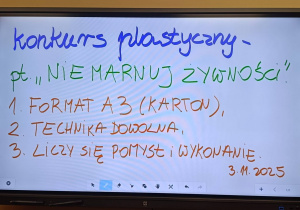 konkurs plastyczny -
pt. „NIE MARNUJ ŻYWNOŚCI".
1. FORMAT A3 (KARTON),
2. TECHNIKA DOWOLNA,
3. LICZY SIĘ POMYSŁ I WYKONANIE.
3.11.2025